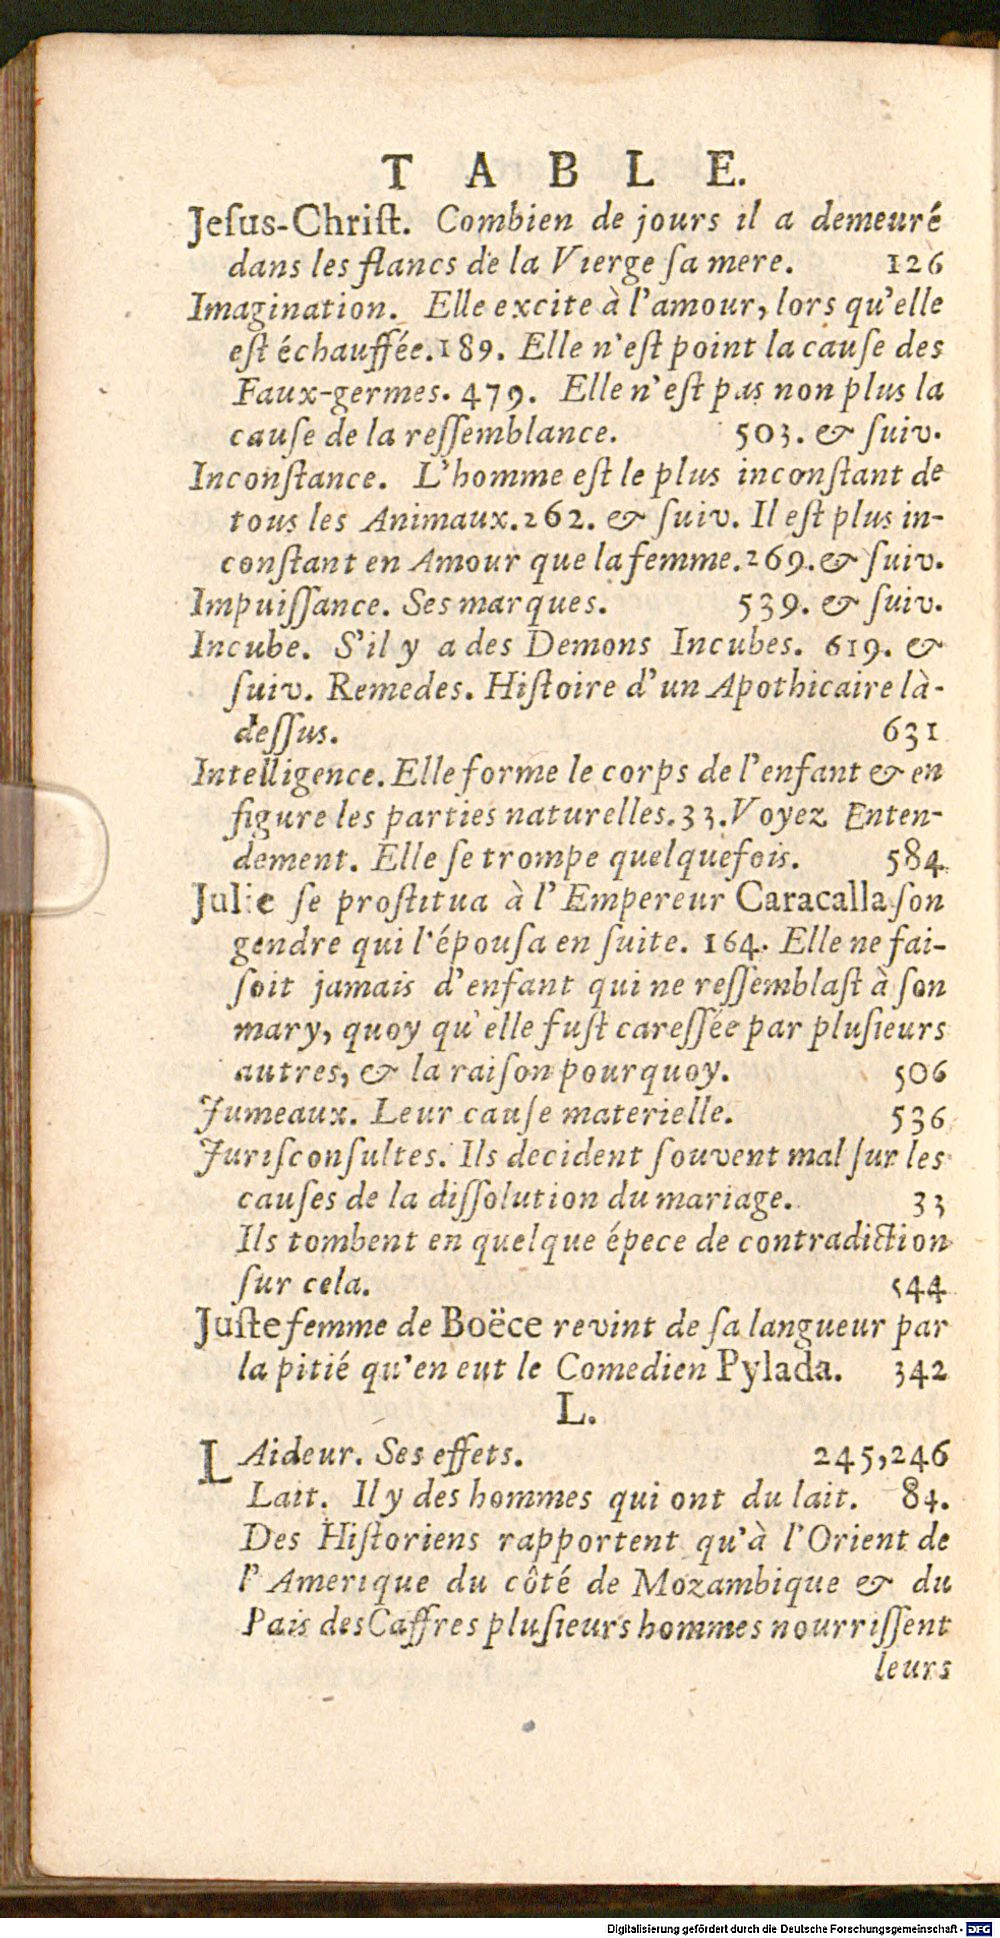 TABLE.
Jeſus-Chriſt. Combien de jours il a demeuré
dans les flancs de la Vierge ſa mere. 126
Imagination. Elle excite à l'amour, lors qu'elle
eſt échauffée. 189. Elle n'eſt point la cauſe des
Faux-germes. 479. Elle n'eſt pas non plus la
cauſe de la reſſemblance. 503. & ſuiv.
Inconſtance. L'homme eſt le plus inconſtant de
tous les Animaux. 262. & ſuiv. Il eſt plus in-
conſtant en Amour que la femme. 269. & ſuiv.
Impuiſſance. Ses marques. 539. & ſuiv.
Incube. S'il y a des Demons Incubes. 619. &
ſuiv. Remedes. Hiſtoire d'un Apothicaire là-
deſſus. 631
Intelligence. Elle forme le corps de l'enfant & en
figure les parties naturelles. 33. Voyez Enten-
dement. Elle ſe trompe quelquefois. 584
Julie ſe proſtitua à l'Empereur Caracalla ſon
gendre qui l'épouſa en ſuite. 164. Elle ne fai-
ſoit jamais d'enfant qui ne reſſemblaſt à ſon
mary, quoy qu'elle fuſt careſſée par pluſieurs
autres, & la raiſon pourquoy. 506
Jumeaux. Leur cauſe materielle. 536
Juriſconſultes. Ils decident ſouvent mal ſur les
cauſes de la diſſolution du mariage. 33
Ils tombent en quelque épece de contradiction
ſur cela. 544
Juſte femme de Boëce revint de ſa langueur par
la pitié qu'en eut le Comedien Pylada. 342
L.
LAideur. Ses effets. 245,246
Lait. Il y des hommes qui ont du lait. 84.
Des Hiſtoriens rapportent qu'à l'Orient de
l'Amerique du côté de Mozambique & du
Pais des Caffres pluſieurs hommes nourriſſent
leurs
Digitalisierung gefördert durch die Deutsche Forschungsgemeinschaft - DFG